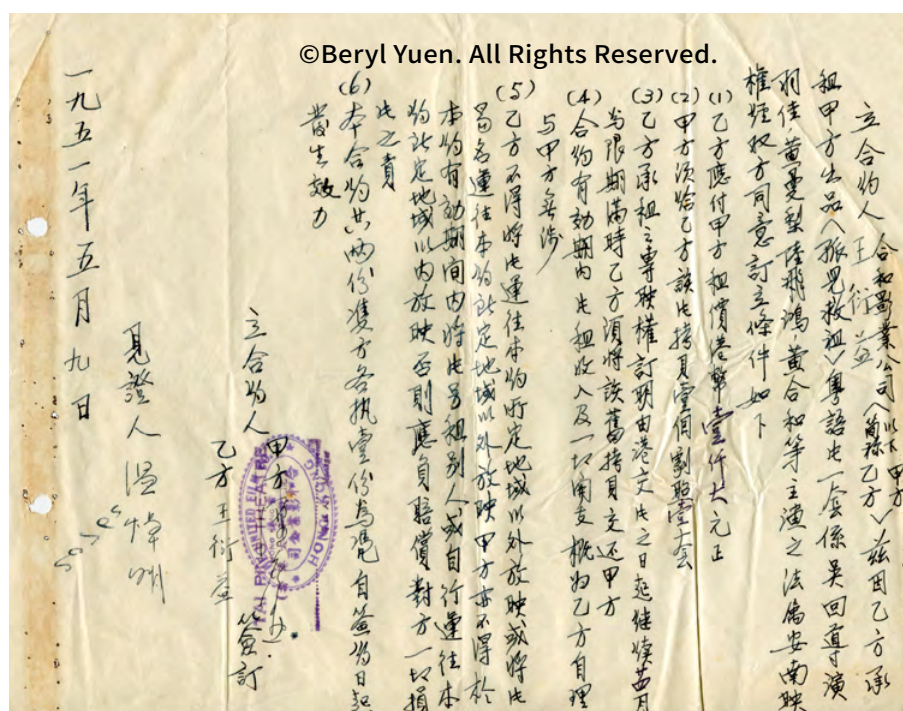 ©Beryl Yuen. All Rights Reserved.
立合約人 合和影業公司(以下簡稱甲方
王衍益 乙方)茲因乙方承
租甲方出品〈孤兒救祖〉粵語片一套係吳回導演
羽佳,黃曼梨陸飛鴻,黃合和等主演之法屬安南映
權經双方同意訂立條件如下
(1)乙方應付甲方租價港幣壹仟大元正
(2)甲方須給乙方該片拷貝壹個劇照壹套
(3)乙方承租之專映權訂期由港交片之日起継續 月
為限期滿時乙方須將該舊拷貝交还甲方
(4)合約有効期內片租收入及一切開支概归乙方自理
与甲方無涉
(5)乙方不得將片運往本約所定地域以外放映或將片
易名運往本約訂定地域以外放映甲方亦不得於
本約有効期间內將片另租别人或自行運往本
約訂定地域以內放映否則應負賠償對方一切損
失之責
(6)本合約共两份雙方各执壹份為凭自簽約日起
發生效力
立合約人 甲方
乙方 王衍益 簽訂
TAI PING THEATRE
UNITED FILM
HONG
見證人 温焯明
一九五一年五月九日